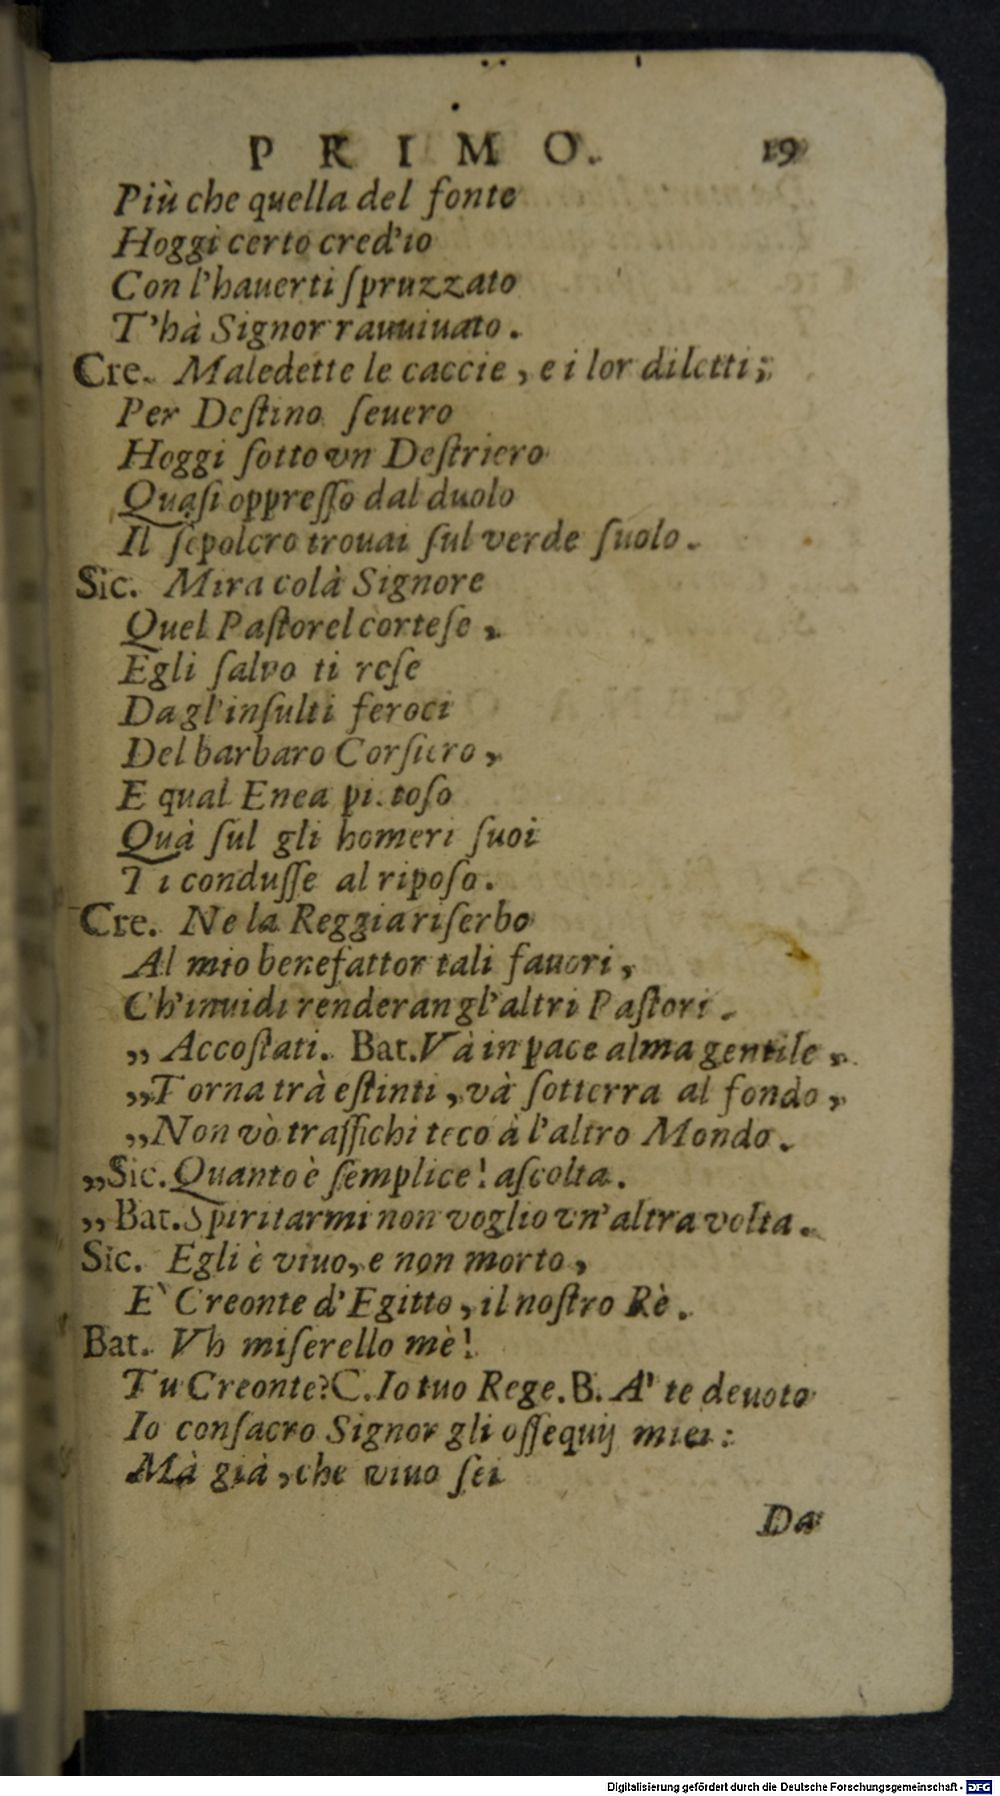 PRIMO. 19
Più che quella del fonte
Hoggi certo cred'io
Con l'hauerti ſpruzzato
T'hà Signor rauuiuato.
Cre. Maledette le caccie, e i lor diletti;
Per Deſtino ſeuero
Hoggi ſotto vn Deſtriero
Quaſi oppreſſo dal duolo
Il ſepolcro trouai ſul verde ſuolo.
Sic. Mira colà Signore
Quel Paſtorel corteſe,
Egli ſalvo ti reſe
Da gl'inſulti feroci
Del barbaro Corſiero,
E qual Enea pi toſo
Quà ſul gli homeri ſuoi
Ti conduſſe al ripoſo.
Cre. Ne la Reggia riſerbo
Al mio benefattor tali fauori,
Ch'inuidi renderan gl'altri Paſtori.
„ Accoſtati. Bat. Và in pace alma gentile,
„Torna trà eſtinti, và ſotterra al fondo,
„Non vò traffichi teco à l'altro Mondo.
„Sic. Quanto è ſemplice! aſcolta.
„ Bat. Spiritarmi non voglio vn'altra volta.
Sic. Egli è viuo, e non morto,
E` Creonte d'Egitto, il noſtro Rè.
Bat. Vh miſerello mè!
Tu Creonte? C. Io tuo Rege. B. A' te deuoto
Io conſacro Signor gli oſſequij miei:
Mà già, che viuo ſei
Da
Digitalisierung gefördert durch die Deutsche Forschungsgemeinschaft - DFG